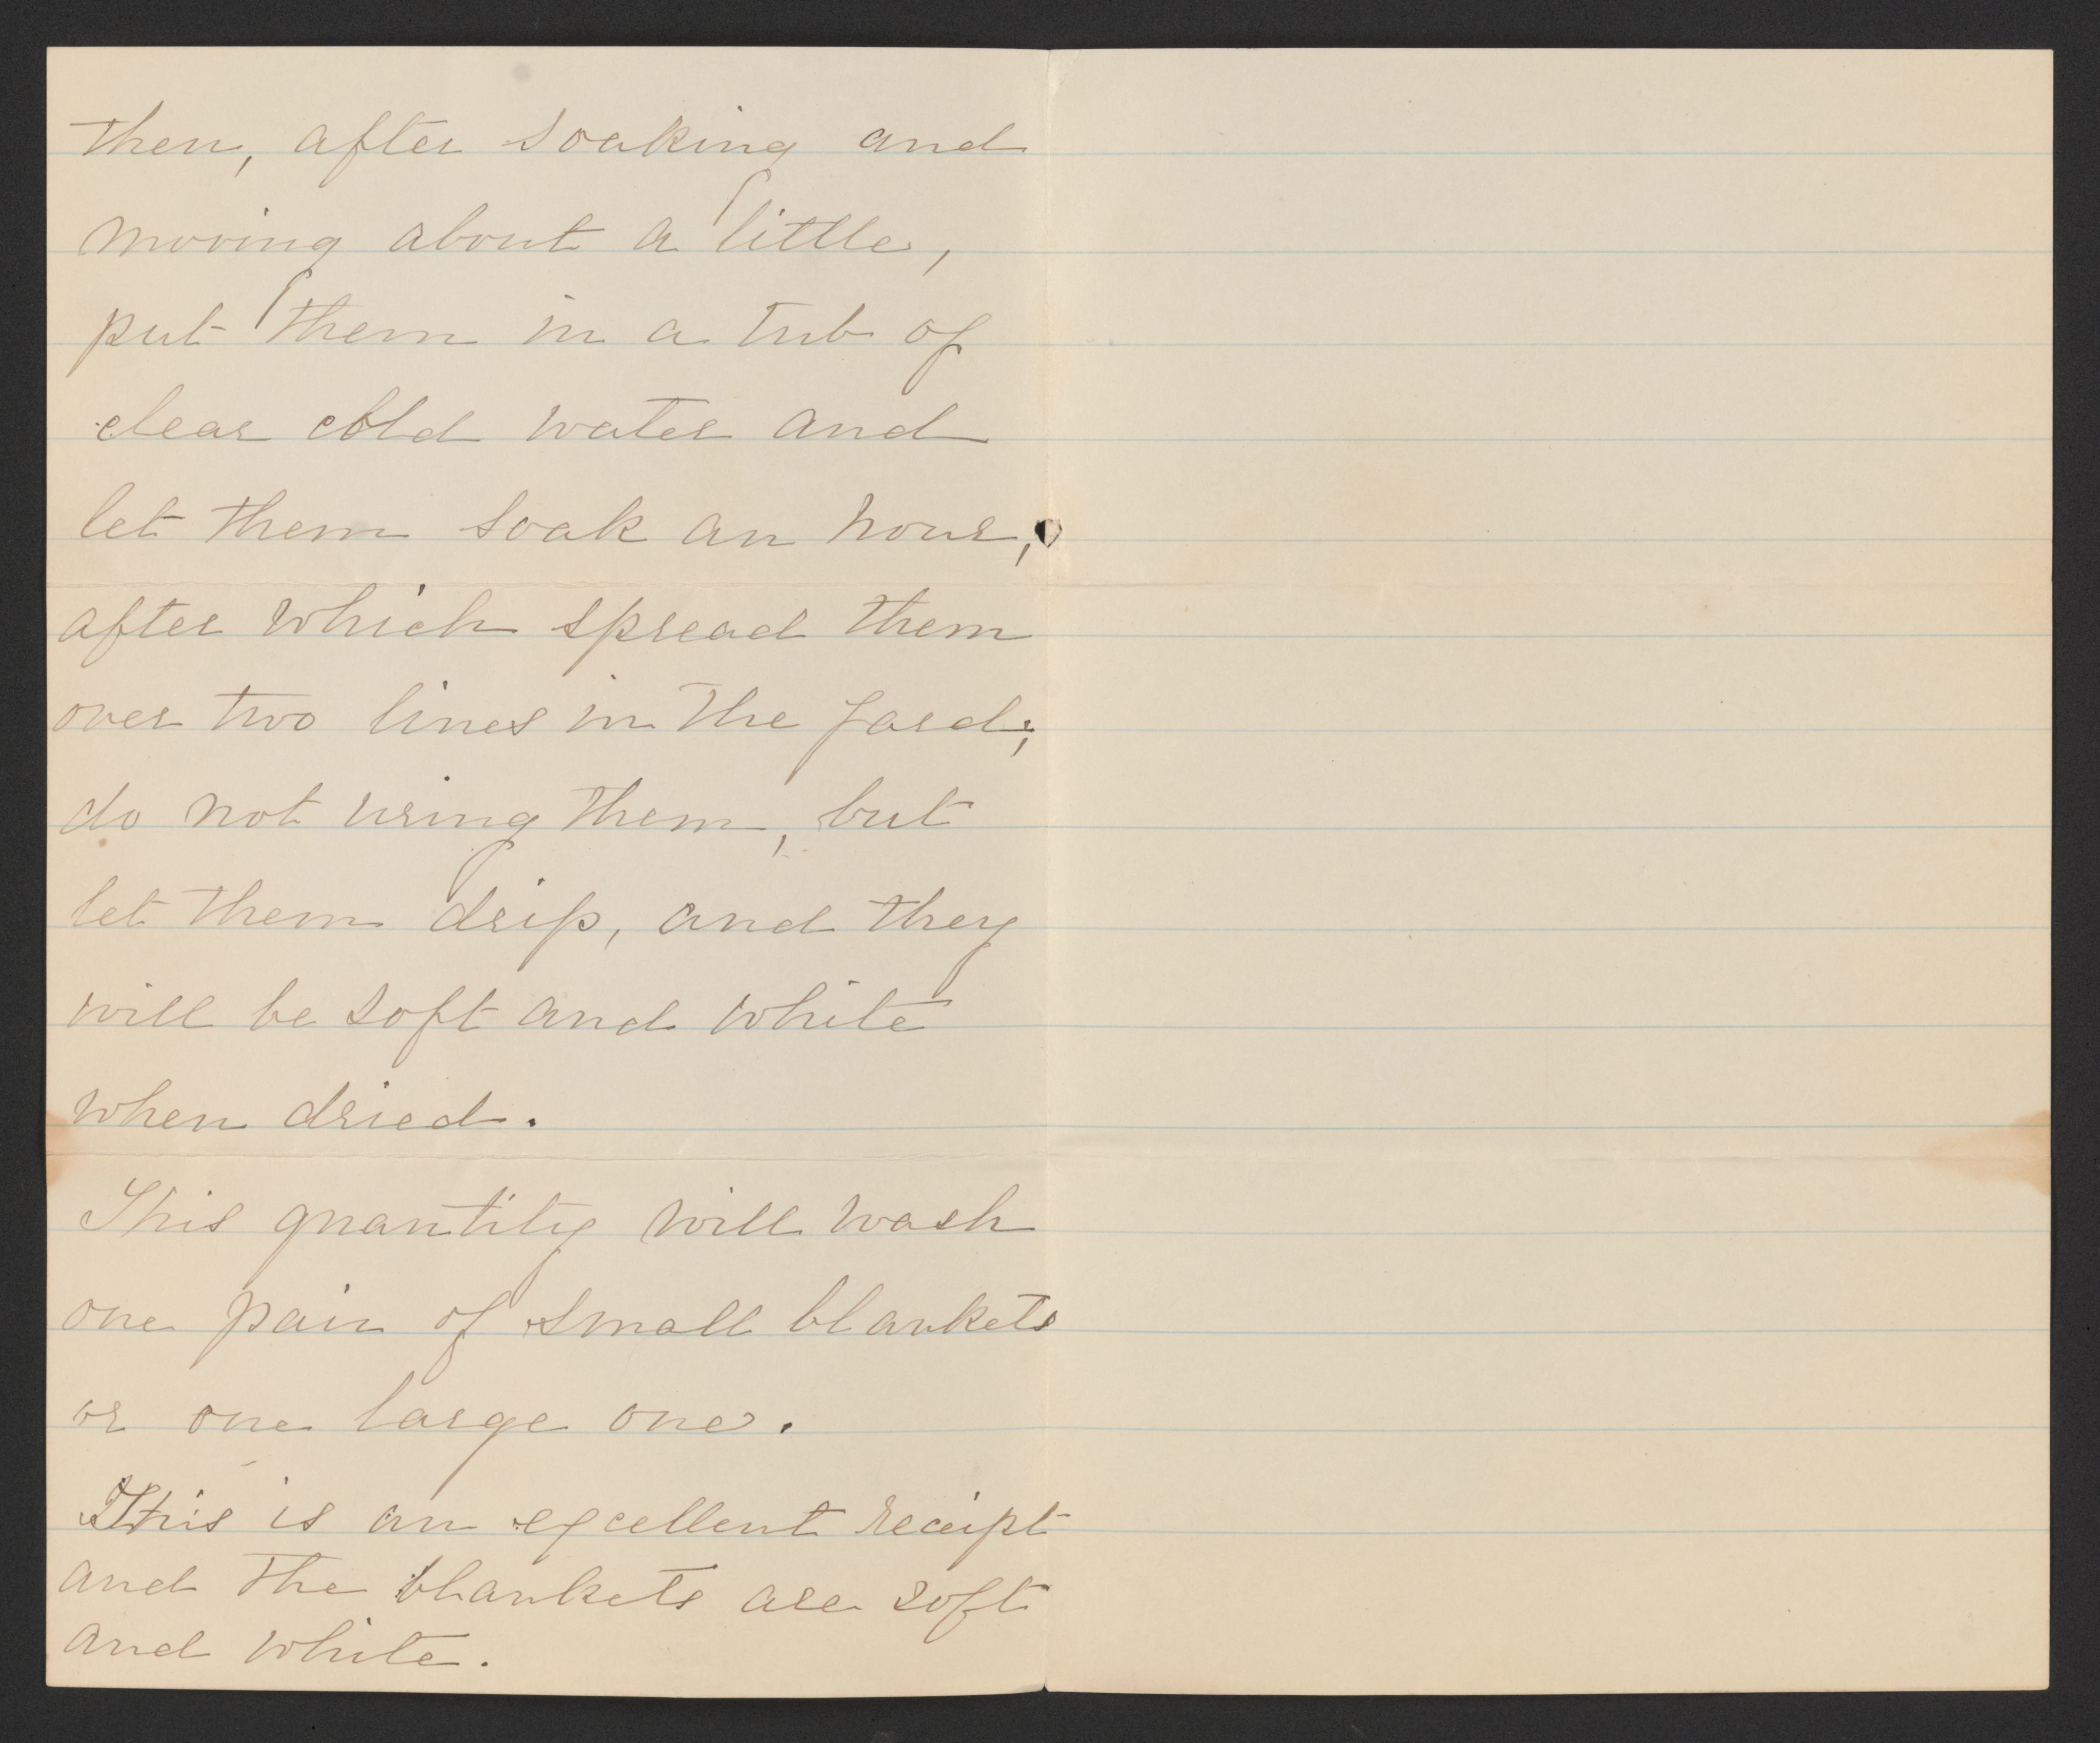 then, after soaking and
moving about a little,
put them in a tub of
clear cold water and
let them soak an hour,
after which spread them
over two lines in the yard;
do not wring them, but
let them drip, and they
will be soft and white
when dried.
This quantity will wash
one pair of small blankets
or one large one.
This is an excellent receipt
and the blankets are soft
and white.